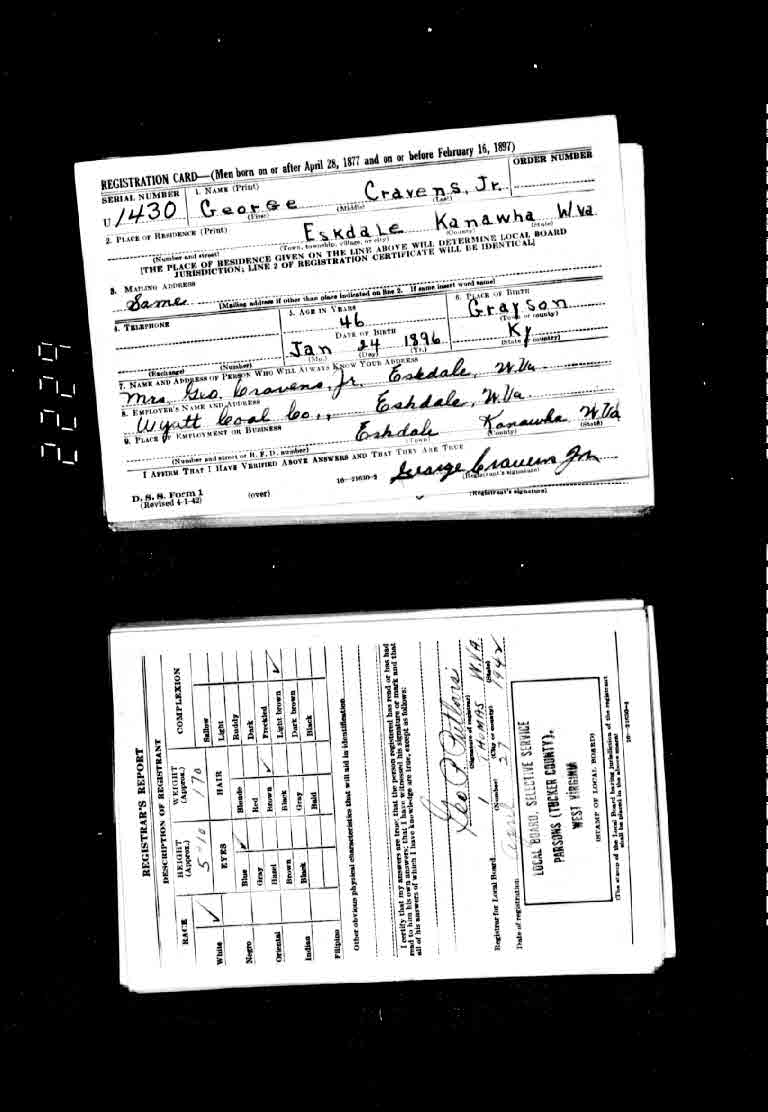 REGISTRATION CARD—(Men born on or after April 28, 1877 and on or before February 16, 1897)
SERIAL NUMBER 1. NAME (Print) ORDER NUMBER
U 1430 George Cravens, Jr.
(First) (Middle) (Last)
2. PLACE OF RESIDENCE (Print)
Eskdale Kanawha W Va
(Number and street) (Town, township, village, or city) (County) (State)
[THE PLACE OF RESIDENCE GIVEN ON THE LINE ABOVE WILL DETERMINE LOCAL BOARD
JURISDICTION; LINE 2 OF REGISTRATION CERTIFICATE WILL BE IDENTICAL]
3. MAILING ADDRESS
Same
[Mailing address if other than place indicated on line 2. If same insert word same]
4. TELEPHONE 5. AGE IN YEARS 6. PLACE OF BIRTH
46 Grayson
DATE OF BIRTH (Town or county)
Jan 24 1896 Ky
(Exchange) (Number) (Mo.) (Day) (Yr.) (State or country)
7. NAME AND ADDRESS OF PERSON WHO WILL ALWAYS KNOW YOUR ADDRESS
Mrs. Geo. Cravens, Jr. Eskdale, W.Va.
8. EMPLOYER'S NAME AND ADDRESS
Wyatt Coal Co., Eskdale, W.Va.
9. PLACE OF EMPLOYMENT OR BUSINESS
Eskdale Kanawha W Va
(Number and street or R. F. D. number) (Town) (County) (State)
I AFFIRM THAT I HAVE VERIFIED ABOVE ANSWERS AND THAT THEY ARE TRUE
George Cravens Jr.
D. S. S. Form 1 (over) 16—21630-2 (Registrant's signature)
(Revised 4-1-42)
(Registrant's signature)
2229
REGISTRAR'S REPORT
DESCRIPTION OF REGISTRANT
RACE HEIGHT (Approx.) WEIGHT (Approx.) COMPLEXION
5-10 170
White ✓ EYES HAIR Sallow
Light
Negro Blue ✓ Blonde Ruddy
Gray Red Dark
Oriental Hazel Brown ✓ Freckled
Brown Black Light brown ✓
Indian Black Gray Dark brown
Filipino Bald Black
Other obvious physical characteristics that will aid in identification
I certify that my answers are true; that the person registered has read or has had
read to him his own answers; that I have witnessed his signature or mark and that
all of his answers of which I have knowledge are true, except as follows:
Geo P
(Signature of registrar)
Registrar for Local Board 1 THOMAS W.VA.
(Number) (City or county) (State)
Date of registration April 27 1942
LOCAL BOARD, SELECTIVE SERVICE
PARSONS (TUCKER COUNTY),
WEST VIRGINIA
(STAMP OF LOCAL BOARD)
(The stamp of the Local Board having jurisdiction of the registrant
shall be placed in the above space)
16—21630-1